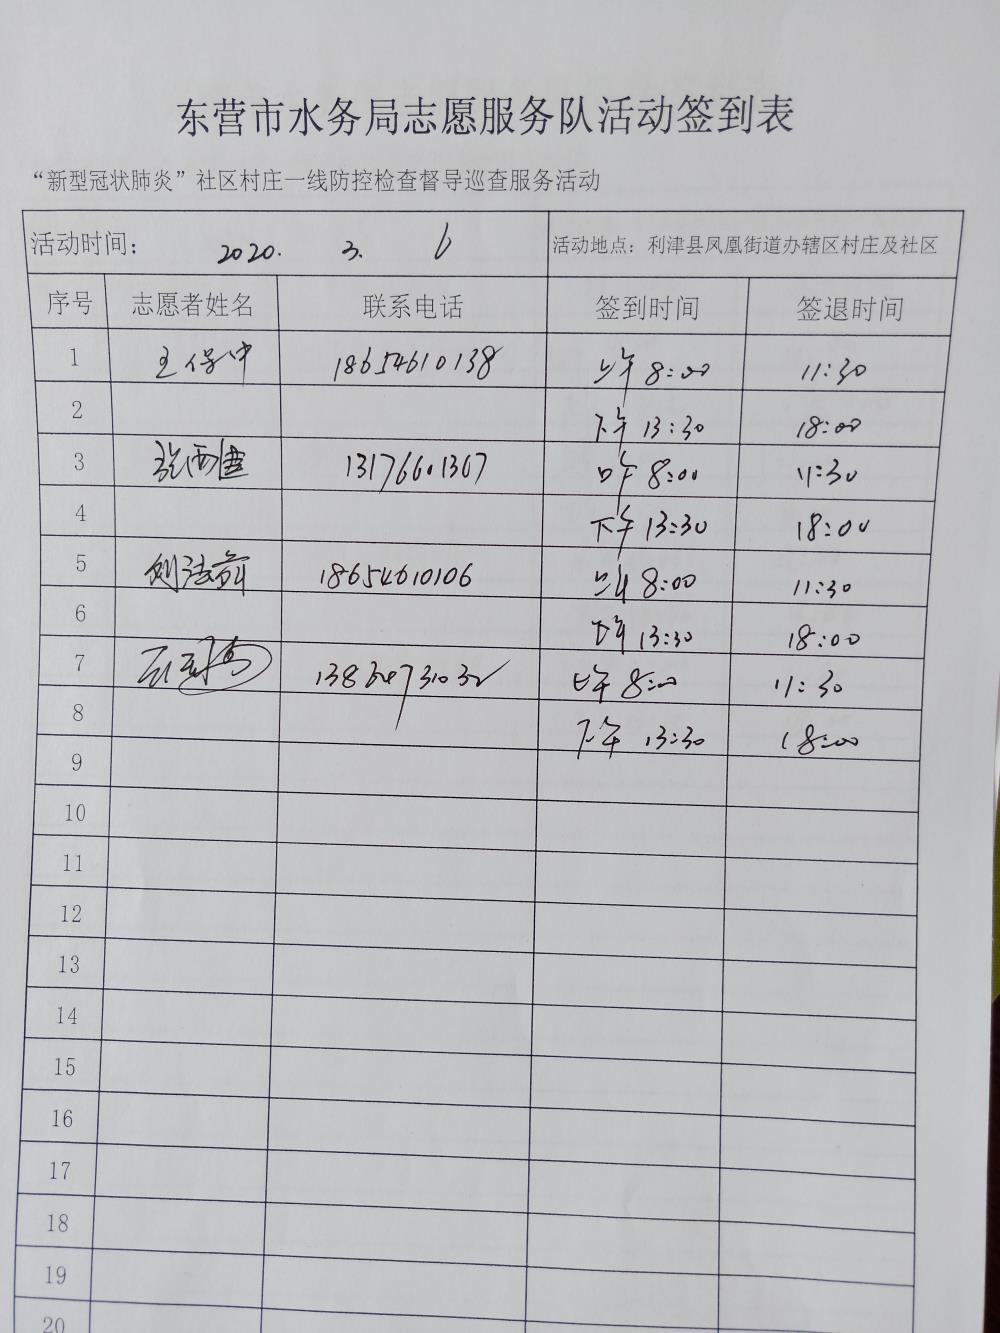 东营市水务局志愿服务队活动签到表
“新型冠状肺炎”社区村庄一线防控检查督导巡查服务活动
活动时间： 2020. 3. 6 活动地点：利津县凤凰街道办辖区村庄及社区
序号 志愿者姓名 联系电话 签到时间 签退时间
1 王保中 18654610138 上午 8:00 11:30
2 下午 13:30 18:00
3 张西建 13176601367 上午 8:00 11:30
4 下午 13:30 18:00
5 刘法前 18654610106 上午 8:00 11:30
6 下午 13:30 18:00
7 上午 8:00 11:30
8 下午 13:30 18:00
9
10
11
12
13
14
15
16
17
18
19
20